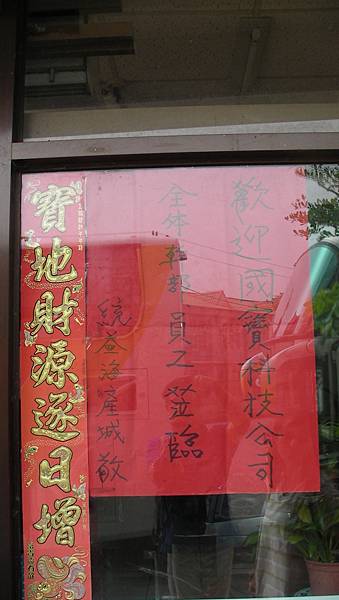 歡迎國鑽科技公司
全体幹部員工蒞臨
統益海產城敬
寶地財源逐日增